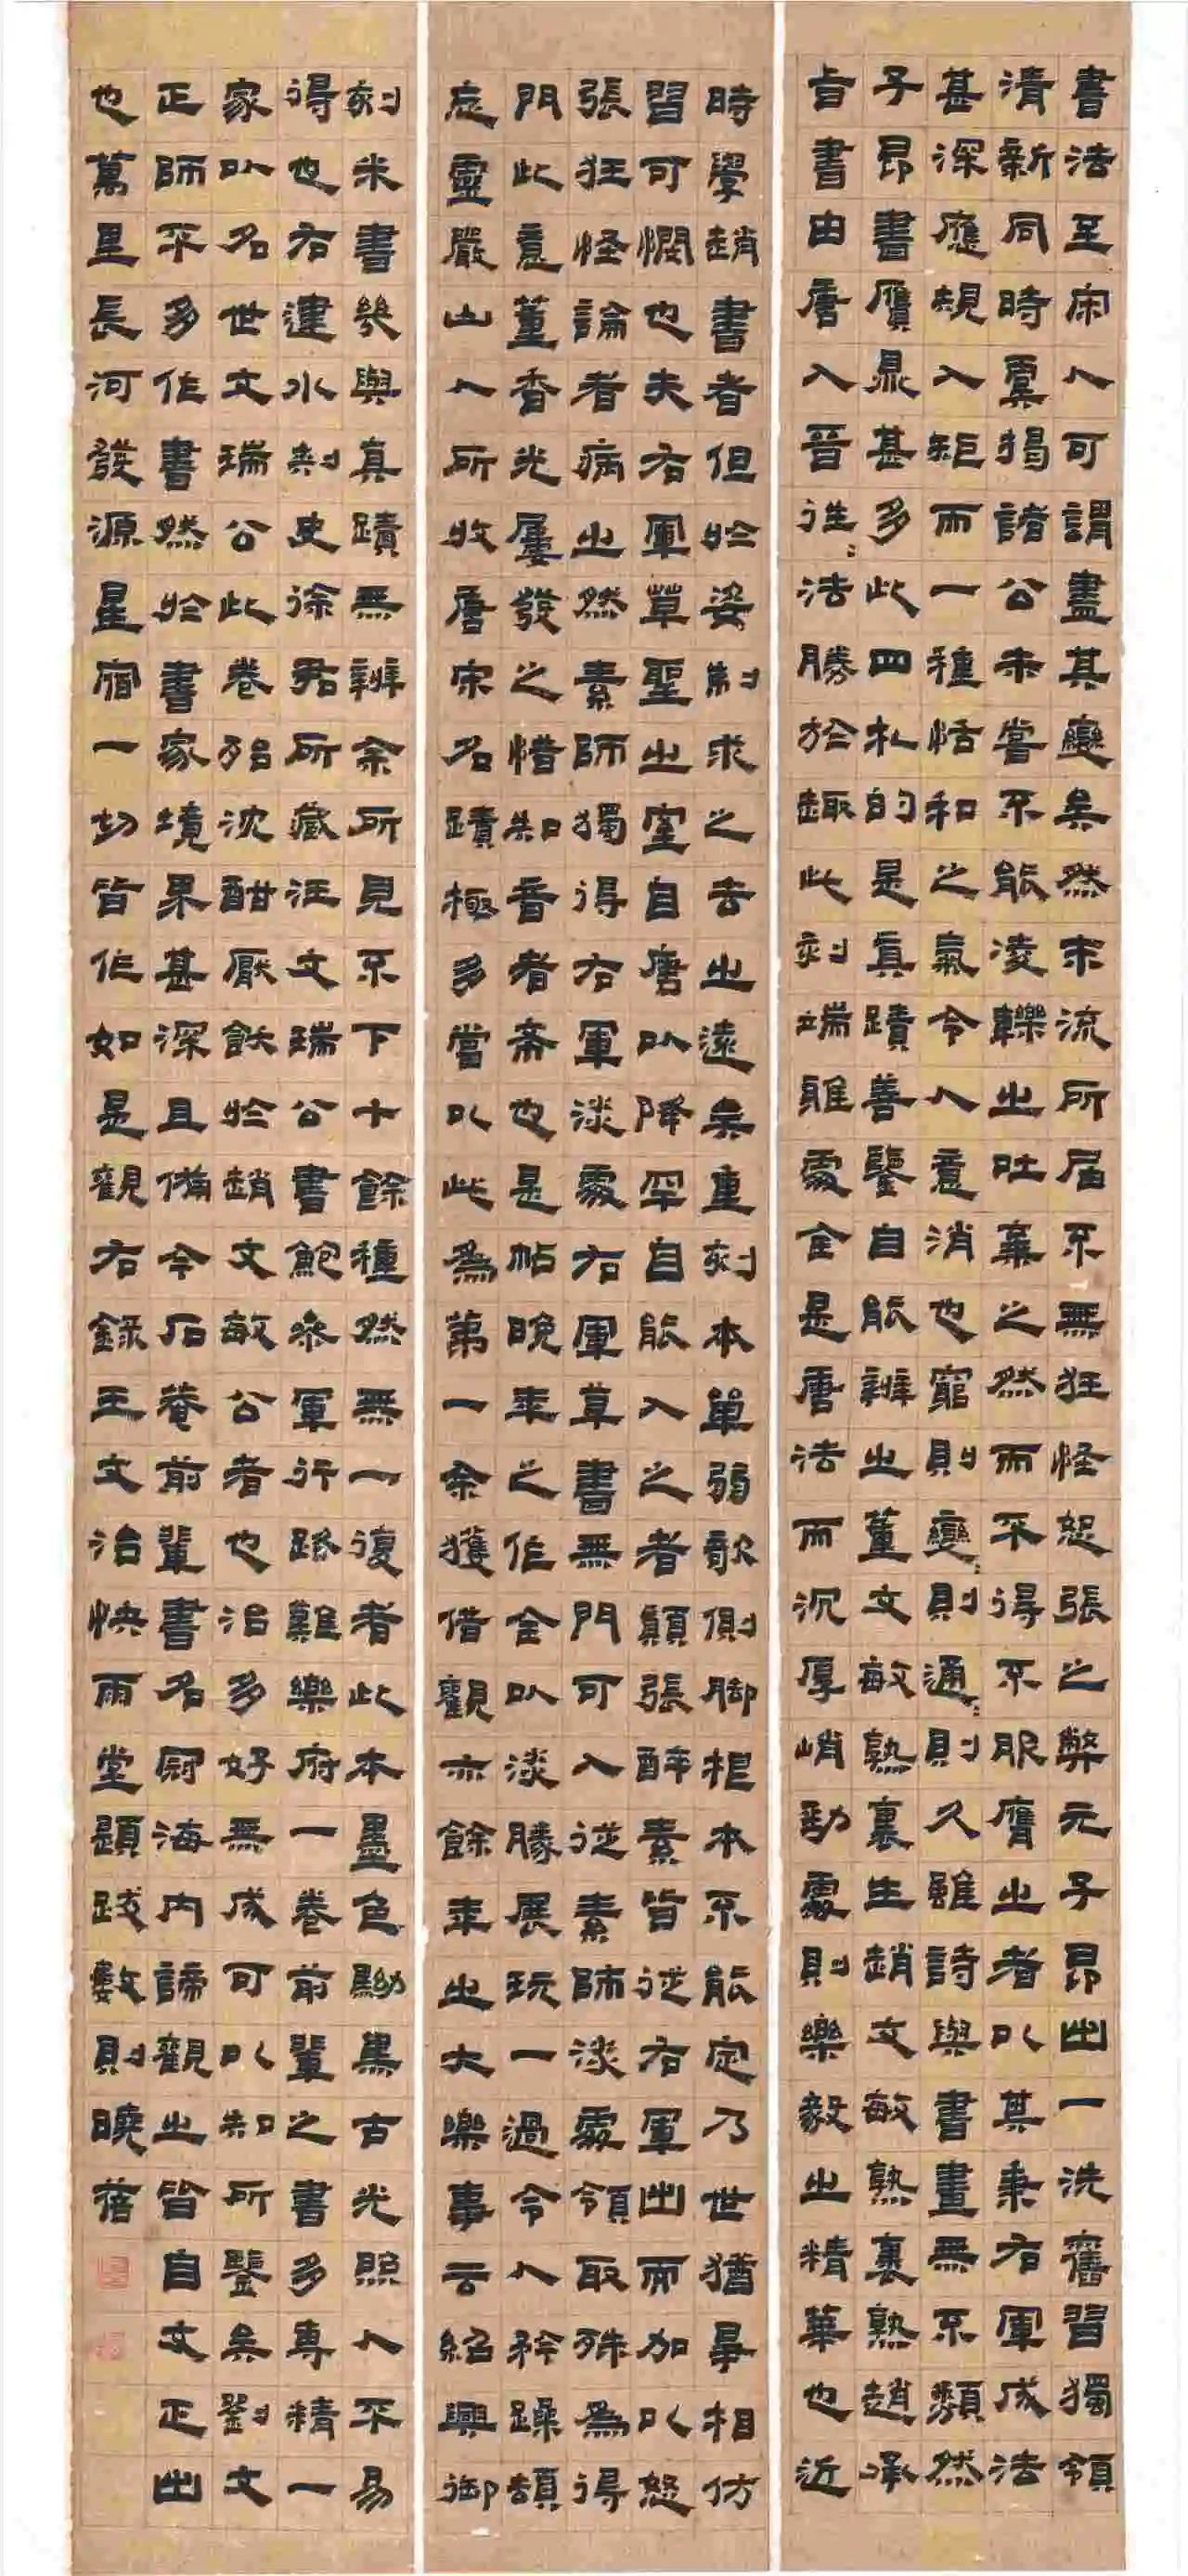 書法至宋人可謂盡其變矣然末流所屆不無狂怪怒張之弊元子昂出一洗舊習獨領
清新同時虞揭諸公未嘗不能凌轢之吐棄之然而不得不服膺之者以其秉右軍成法
甚深應規入矩而一種恬和之氣令人意消也窮則變變則通通則久雖詩與書畫無不類然
子昂書贗最甚多此四札的是真蹟善鑒自能辨之董文敏熟裏生趙文敏熟裏熟趙承
旨書由唐入晉往往法勝於趣此刻端雅處全是唐法而沉厚峭勁處則樂毅之精華也近
時學趙書者但於姿制求之去之遠矣重刻本單弱欹側脚根本不能定乃世猶爭相仿
習可憫也夫右軍草聖之室自唐以降罕自能入之者顛張醉素皆從右軍出而加以怒
張狂怪論者病之然素師獨得右軍淡處右軍草書無門可入從素師淡處領取殊為得
門此意董香光屢發之惜知音者希也是帖晚年之作全以淡勝展玩一過令人矜躁頓
忘靈嚴山人所收唐宋名蹟極多當以此為第一余獲借觀亦餘年之大樂事云紹興御
刻米書幾與真蹟無辨余所見不下十餘種然無一復者此本墨色黝黑古光照人不易
得也右建水刺史徐君所藏汪文瑞公書鮑參軍行路難樂府一卷前輩之書多專精一
家以名世文瑞公此卷殆沈酣厭飫於趙文敏公者也治多好無成可以知所鑒矣劉文
正師不多作書然於書家境界甚深且備今石菴前輩書名冠海內諦觀之皆自文正出
也萬里長河發源星宿一切皆作如是觀右錄王文治快雨堂題跋數則曉蓓